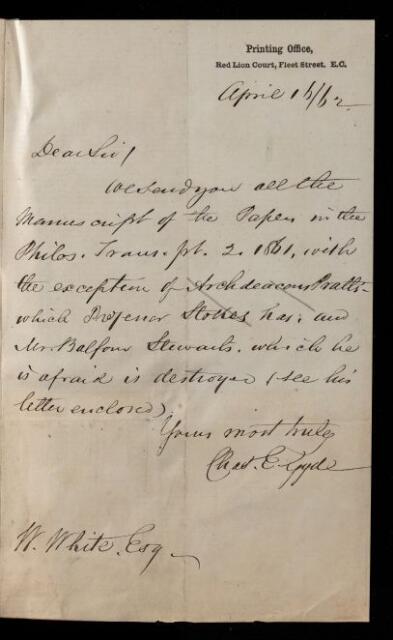 Printing Office,
Red Lion Court, Fleet Street, E.C.
April 16/62
Dear Sir/
We send you all the
Manuscript of the Papers in the
Philos. Trans. pt. 2. 1861, with
the exception of Archdeacon Pratt's
which Professor Stokes has; and
Mr. Balfour Stewarts. which he
is afraid is destroyed (see his
letter enclosed)
Yours most truly
Chas. E. Gyde
W. White. Esq